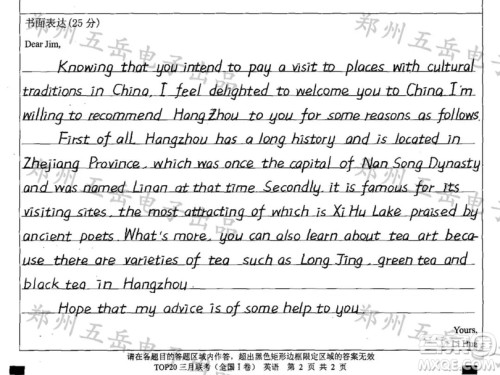 书面表达(25分)
Dear Jim,
Knowing that you intend to pay a visit to places with cultural
traditions in China, I feel delighted to welcome you to China. I'm
willing to recommend HangZhou to you for some reasons as follows.
First of all, Hangzhou has a long history and is located in
Zhejiang Province, which was once the capital of Nan Song Dynasty
and was named Linan at that time. Secondly, it is famous for its
visiting sites, the most attracting of which is Xi Hu Lake praised by
ancient poets. What's more, you can also learn about tea art beca-
use there are varieties of tea such as Long Jing, green tea and
black tea in Hangzhou.
Hope that my advice is of some help to you.
Yours,
Li Hua
请在各题目的答题区域内作答，超出黑色矩形边框限定区域的答案无效
TOP20 三月联考（全国Ⅰ卷） 英语 第 2 页 共 2 页
郑州五岳电子出品
郑州五岳电子出品
郑州五岳电子出品